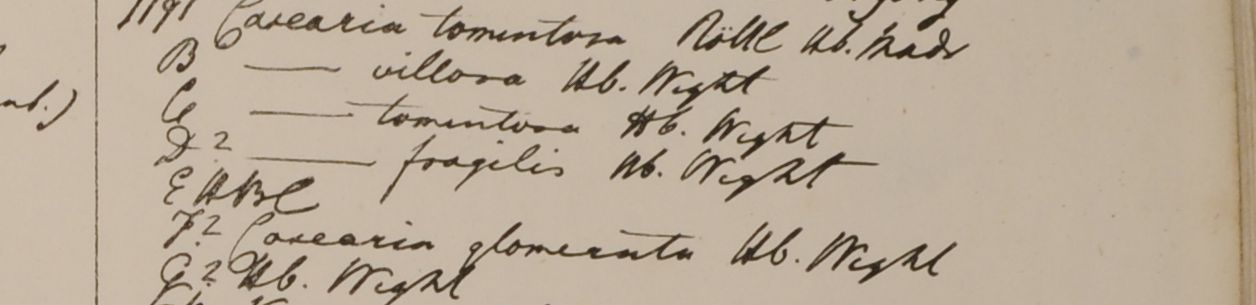 Casearia tomentosa Röttl Hb. Madr
B —— villosa Hb. Wight
C —— tomentosa Hb. Wight
D? —— fragilis Hb. Wight
E HBC
F? Casearia glomerata Hb. Wight
G? Hb. Wight
nb.)